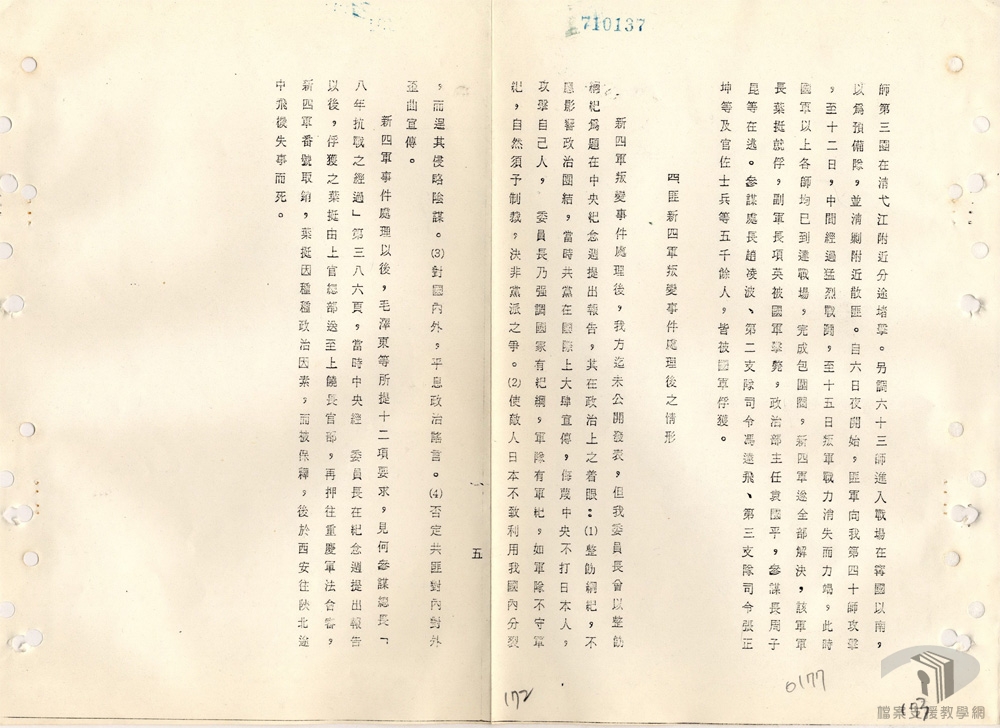 710137
師第三團在清弋江附近分途堵擊。另調六十三師進入戰場在寗國以南，
以爲預備隊，並清剿附近散匪。自六日夜開始，匪軍向我第四十師攻擊
，至十二日，中間經過猛烈戰鬪，至十五日叛軍戰力消失而力竭，此時
國軍以上各師均已到達戰場，完成包圍圈，新四軍遂全部解決，該軍軍
長葉挺就俘，副軍長項英被國軍擊斃，政治部主任袁國平，參謀長周子
昆等在逃。參謀處長趙凌波、第二支隊司令馮達飛、第三支隊司令張正
坤等及官佐士兵等五千餘人，皆被國軍俘獲。
四、匪新四軍叛變事件處理後之情形
新四軍叛變事件處理後，我方迄未公開發表，但我委員長曾以整飭
綱紀爲題在中央紀念週提出報告，其在政治上之着眼：(1)整飭綱紀，不
影響政治團結，當時共黨在國際上大肆宣傳，侮蔑中央不打日本人，
攻擊自己人，　委員長乃强調國家有紀綱，軍隊有軍紀，如軍隊不守軍
紀，自然須予制裁，決非黨派之爭。(2)使敵人日本不敢利用我國內分裂
五
，而逞其侵略陰謀。(3)對國內外，平息政治謠言。(4)否定共匪對內對外
歪曲宣傳。
新四軍事件處理以後，毛澤東等所提十二項要求，見何參謀總長「
八年抗戰之經過」第三八六頁，當時中央經　委員長在紀念週提出報告
以後，俘獲之葉挺由上官總部送至上饒長官部，再押往重慶軍法會審，
新四軍番號取銷，葉挺因種種政治因素，而被保釋，後於西安往陝北途
中飛後失事而死。
172
0177
173
檔案支援教學網